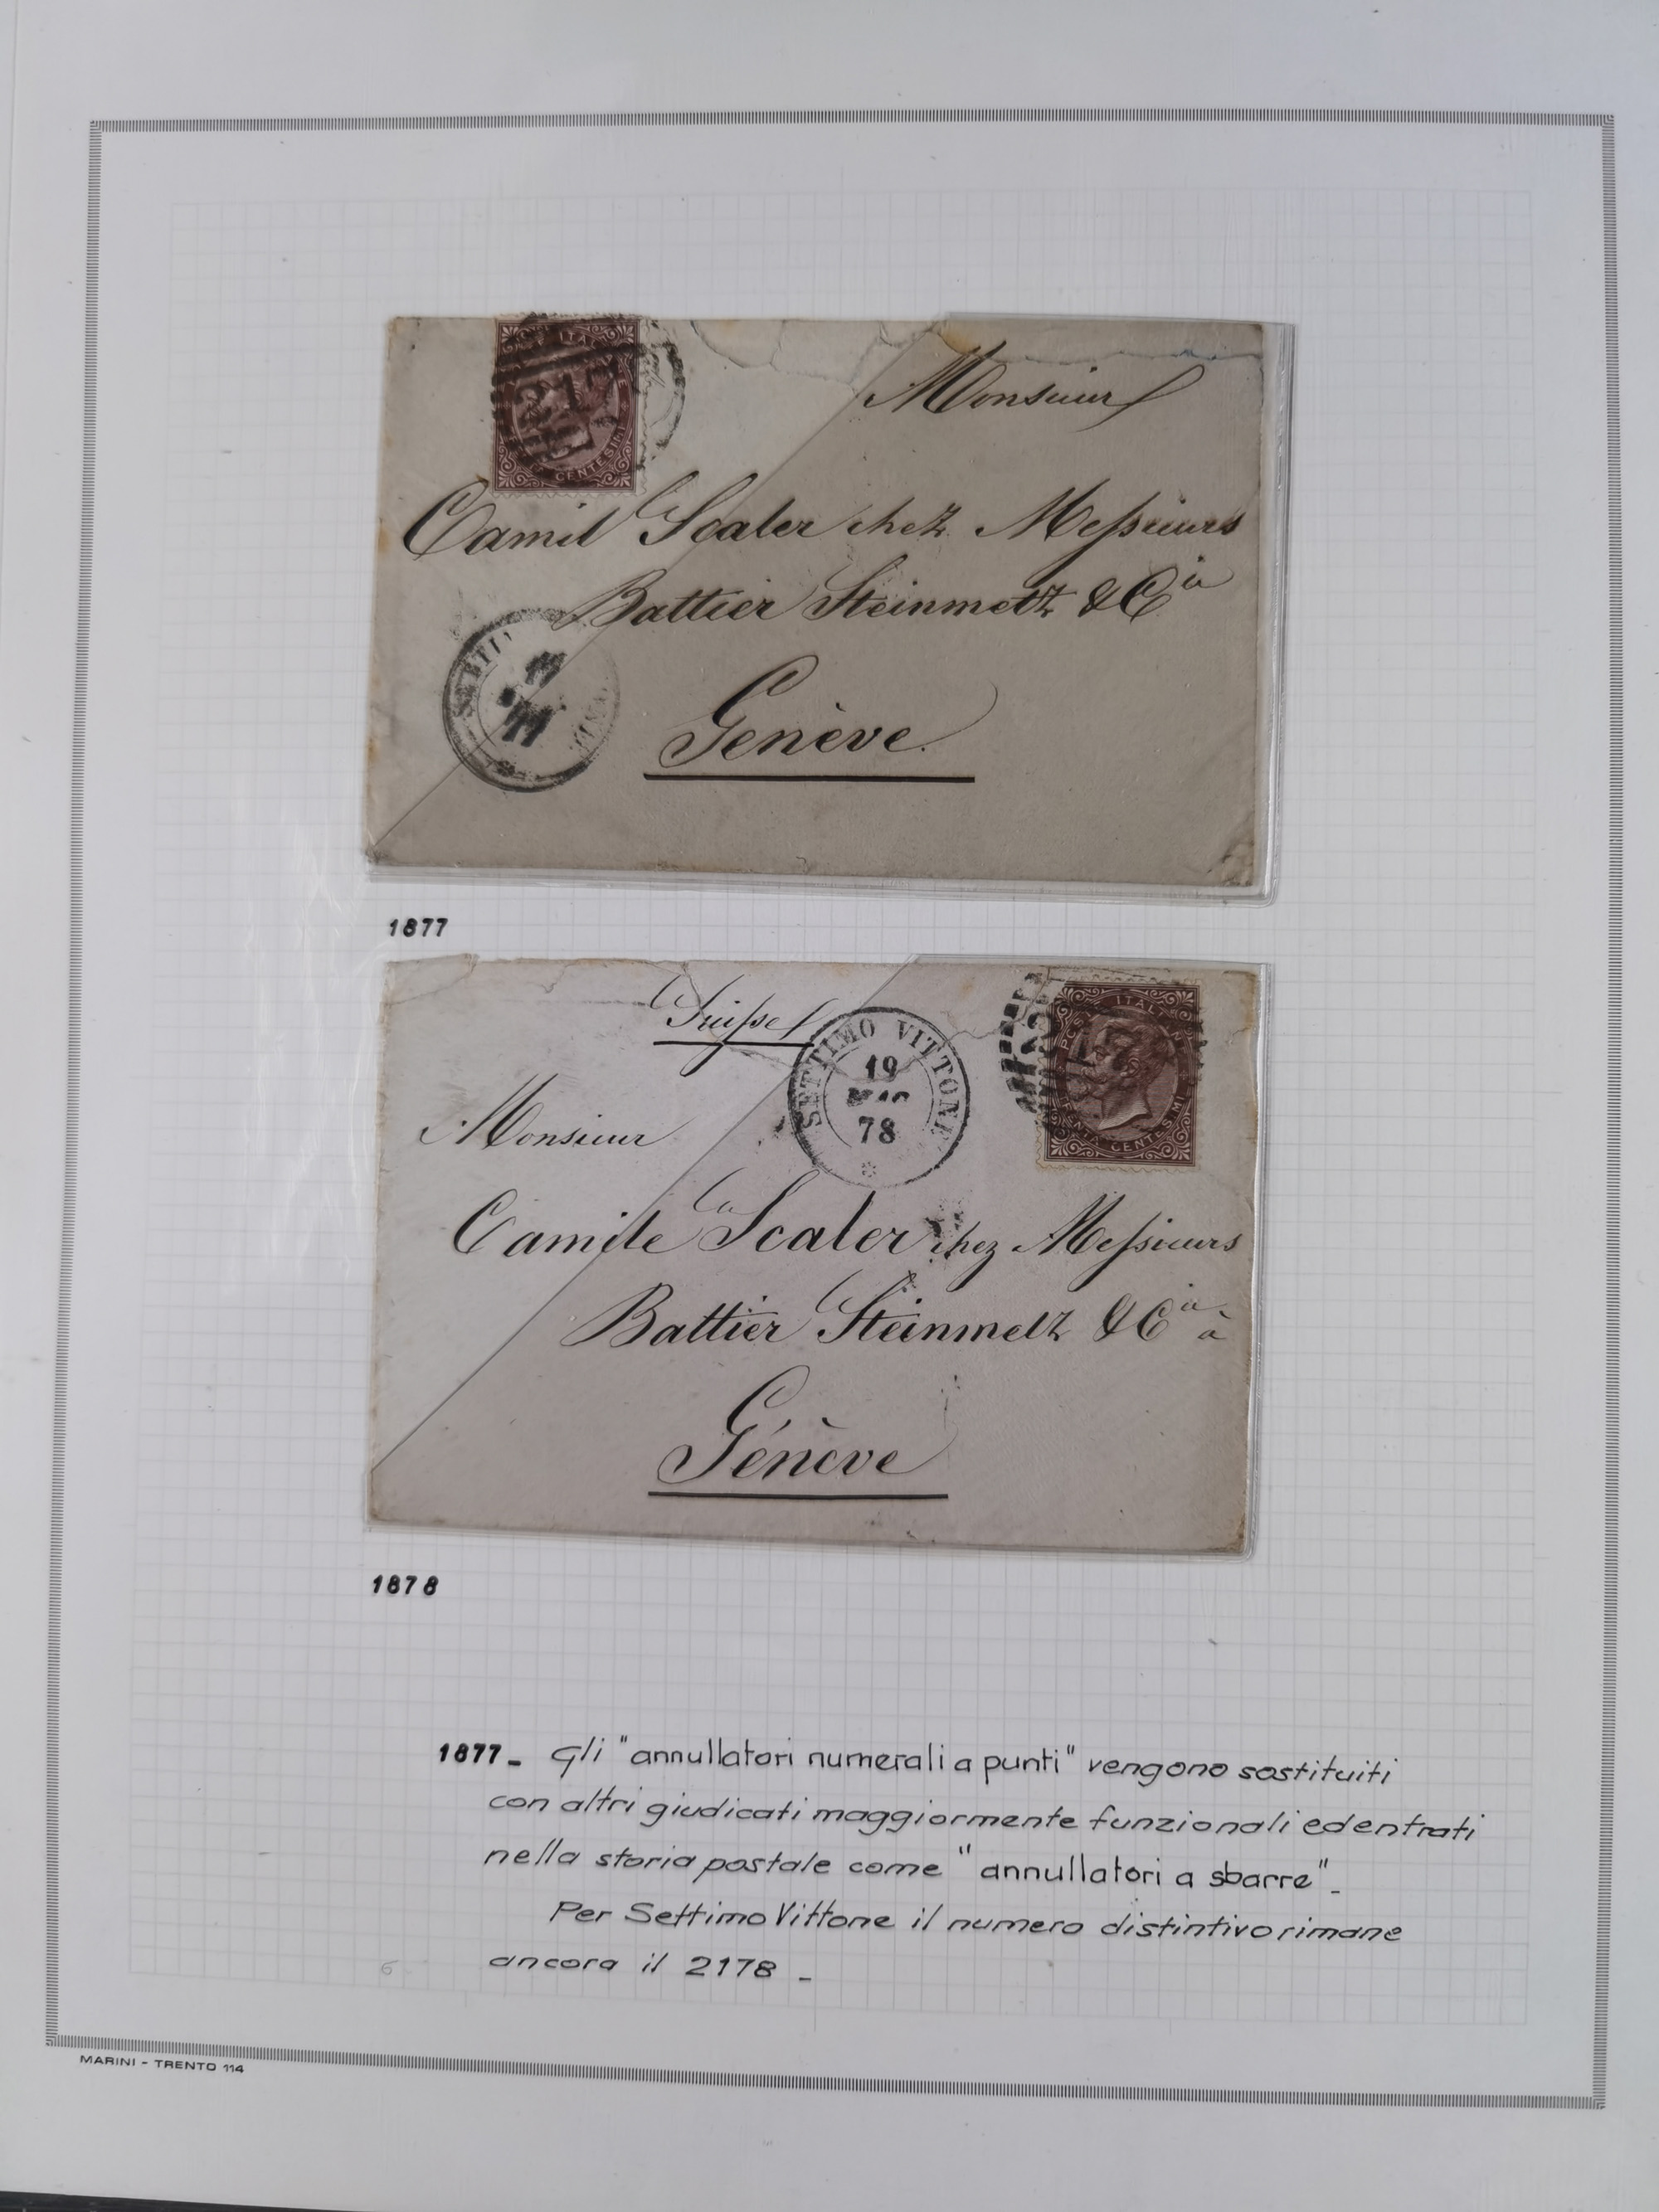 217
Monsieur
Camil Scaler chez Messieurs
Battier Steinmetz & Cia
Genève.
1877
Suisse
SETTIMO VITTONE
19
MAG
78
POSTE ITALIANE
TRENTA CENTESIMI
Monsieur
Camile Scaler chez Messieurs
Battier Steinmetz & Cia à
Génève
1878
1877 - Gli "annullatori numerali a punti" vengono sostituiti
con altri giudicati maggiormente funzionali ed entrati
nella storia postale come "annullatori a sbarre" -
Per Settimo Vittone il numero distintivo rimane
ancora il 2178 -
6
MARINI - TRENTO 114